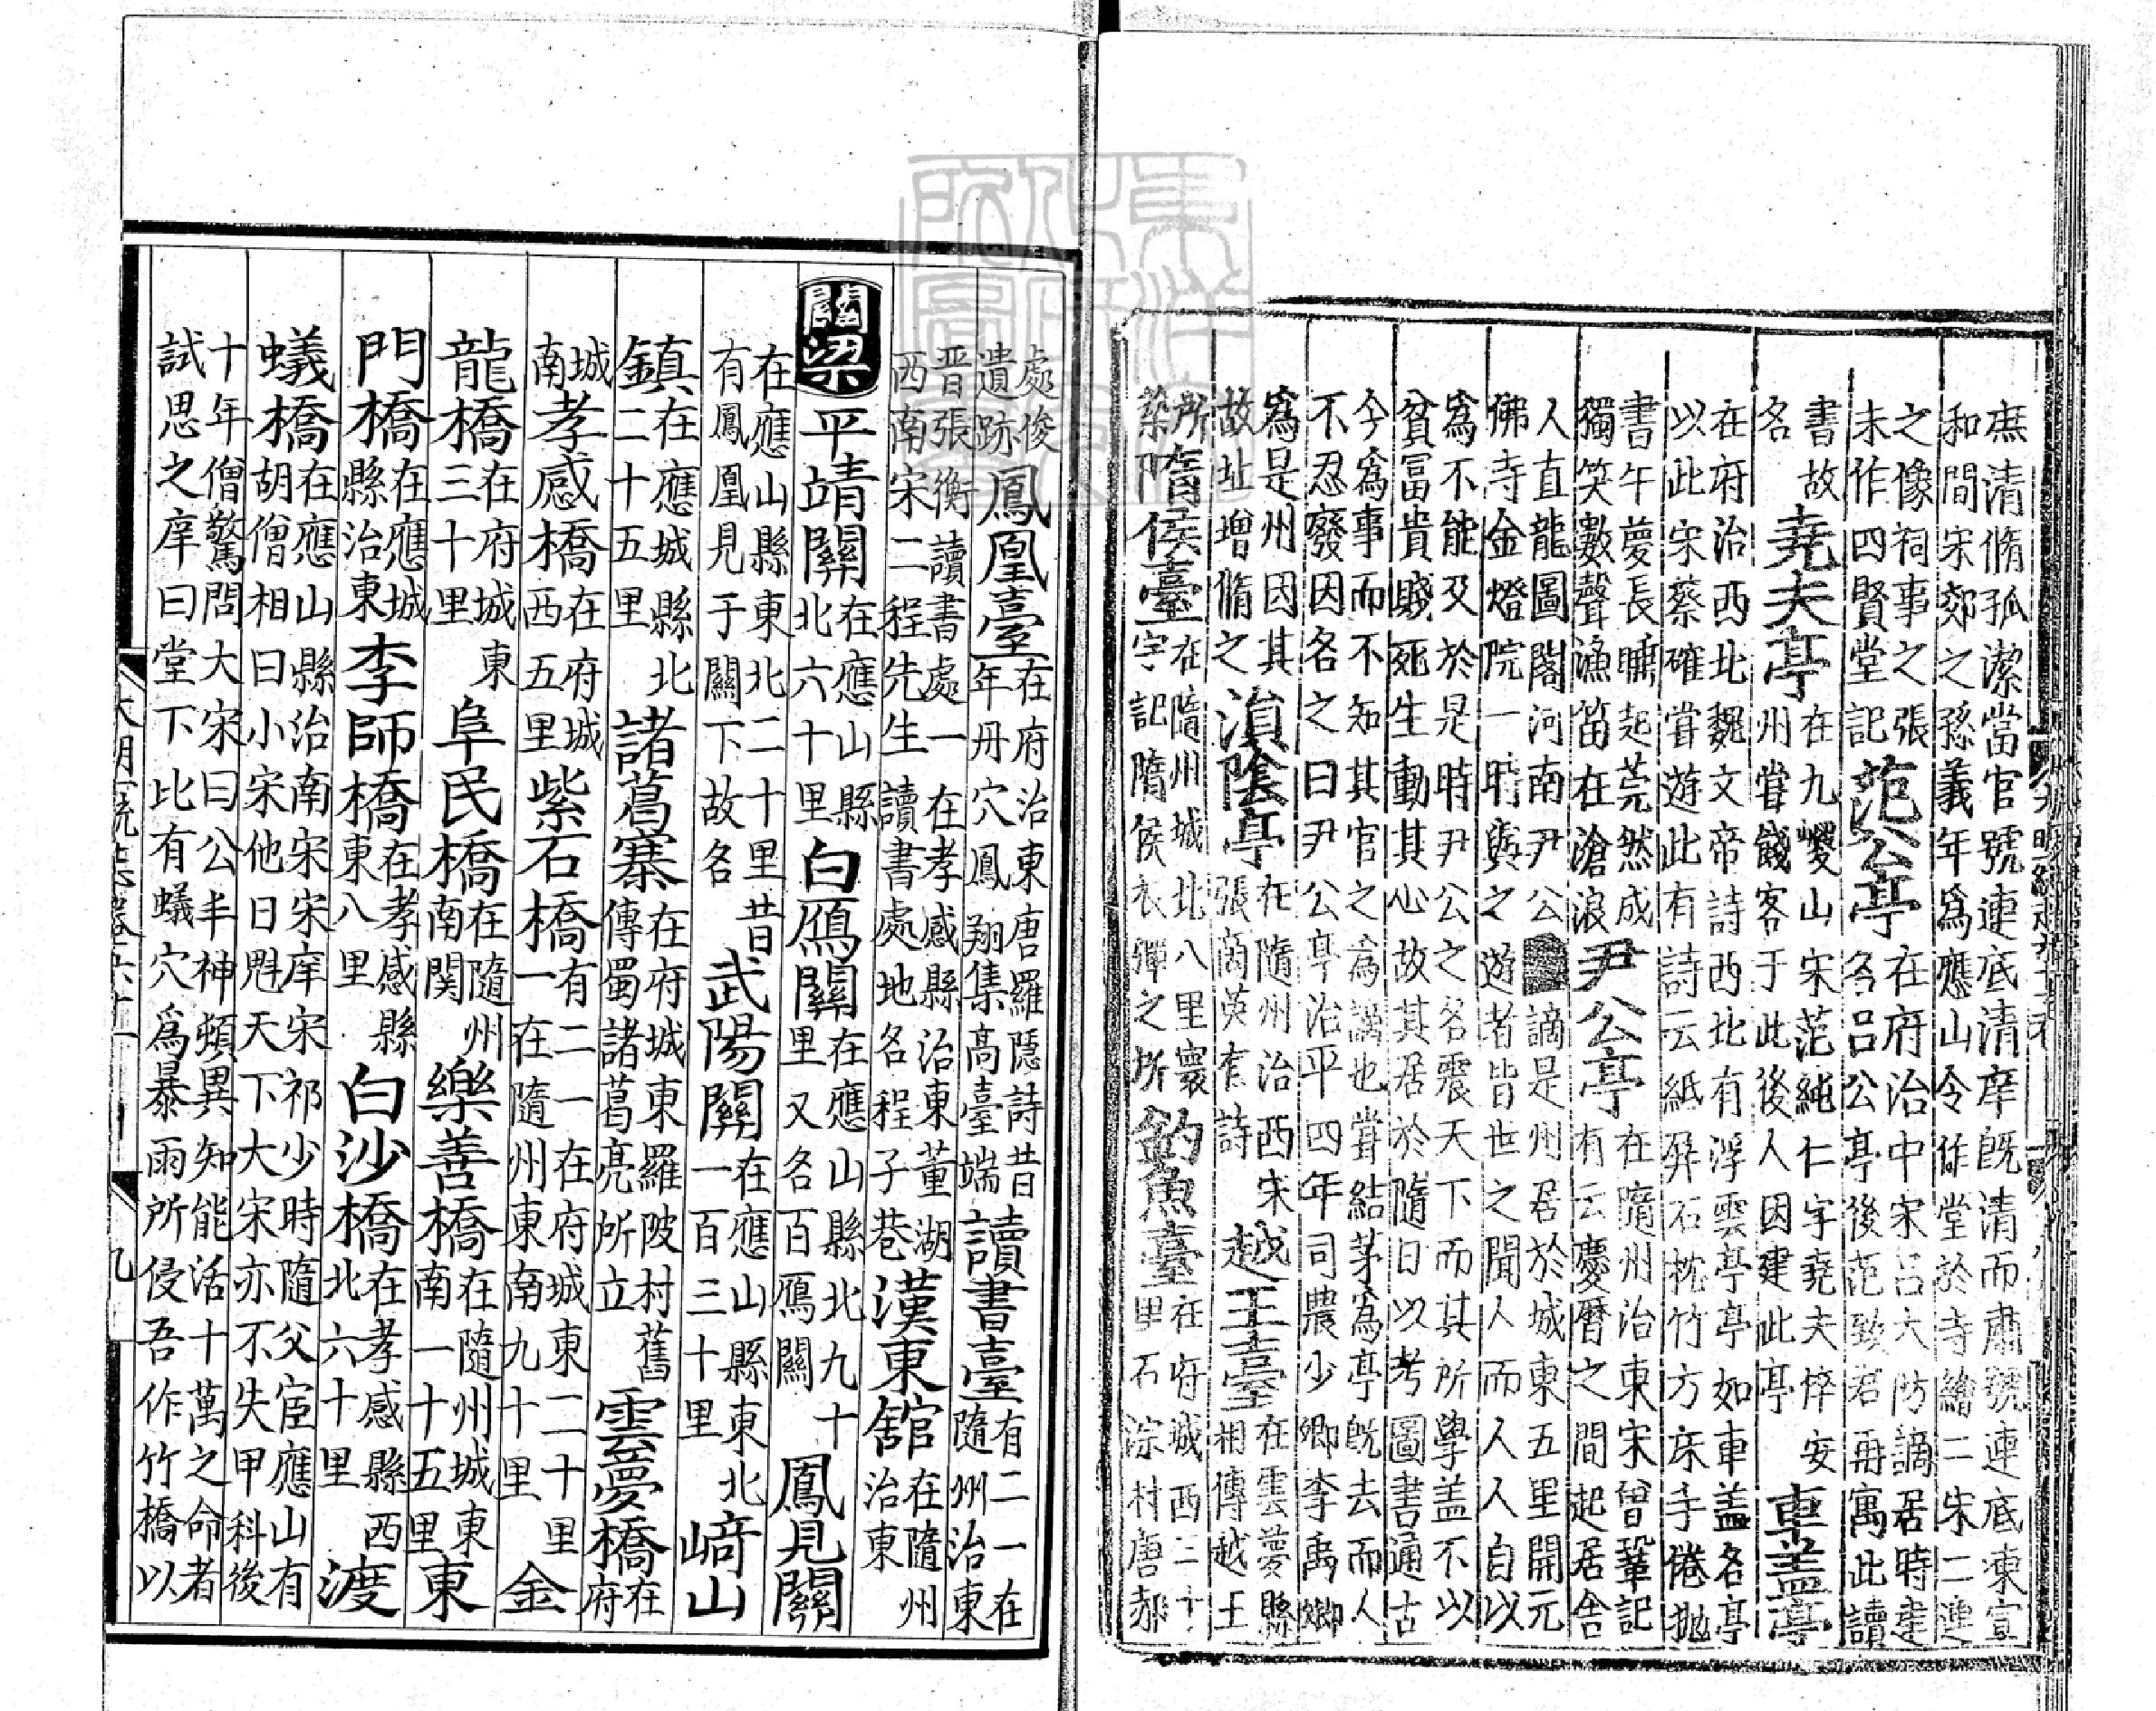 庶清脩孤潔當官號連底清庠既清而肅號連底凍宣
和間宋郊之孫義年為應山令作堂於寺繪二宋二連
之像祠事之張
未作四賢堂記
范公亭
在府治中宋呂大防謫居時建
名呂公亭後范致君再寓此讀
書故
名
堯夫亭
在九㠇山宋范純仁字堯夫倅安
州嘗餞客于此後人因建此亭
車盖亭
在府治西北魏文帝詩西北有浮雲亭亭如車盖名亭
以此宋蔡確嘗遊此有詩云紙屏石枕竹方床手倦抛
書午夢長睡起莞然成
獨笑數聲漁笛在滄浪
尹公亭
在隋州治東宋曾鞏記
有云慶曆之間起居舍
人直龍圖閣河南尹公謫是州居於城東五里開元
佛寺金燈院一時與之遊者皆世之聞人而人人自以
為不能及於是時尹公之名震天下而其所學盖不以
貧富貴賤死生動其心故其居於隨日以考圖書通古
今為事而不知其官之為謫也嘗結茅為亭既去而人
不忍廢因名之曰尹公亭治平四年司農少卿李禹卿
為是州因其
故址增脩之
溳陰亭
在隨州治西宋
張商英有詩
越王臺
在雲夢縣
相傳越王
所
築
隋侯臺
在隋州城北八里寰
宇記隋侯衣彈之所
釣魚臺
在府城西三十
里石淙村唐郝
處俊
遺跡
鳳凰臺
在府治東唐羅隱詩昔
年丹穴鳳翔集高臺端
讀書臺
有二一在
隨州治東
晋張衡讀書處一在孝感縣治東董湖
西南宋二程先生讀書處地名程子巷
漢東舘
在隨州
治東
關梁
平靖關
在應山縣
北六十里
白鴈關
在應山縣北九十
里又名百鴈關
鳳見關
在應山縣東北二十里昔
有鳳凰見于關下故名
武陽關
在應山縣東北
一百三十里
崎山
鎮
在應城縣北
二十五里
諸葛寨
在府城東羅陂村舊
傳蜀諸葛亮所立
雲夢橋
在
府
城
南
孝感橋
在府城
西五里
紫石橋
有二一在府城東二十里
一在隨州東南九十里
金
龍橋
在府城東
三十里
阜民橋
在隨州
南関
樂善橋
在隨州城東
南一十五里
東
門橋
在應城
縣治東
李師橋
在孝感縣
東八里
白沙橋
在孝感縣西
北六十里
渡
蟻橋
在應山縣治南宋宋庠宋祁少時隨父宦應山有
胡僧相曰小宋他日魁天下大宋亦不失甲科後
十年僧驚問大宋曰公丰神頓異知能活十萬之命者
試思之庠曰堂下比有蟻穴為暴雨所侵吾作竹橋以
大明一統志卷六十一
九